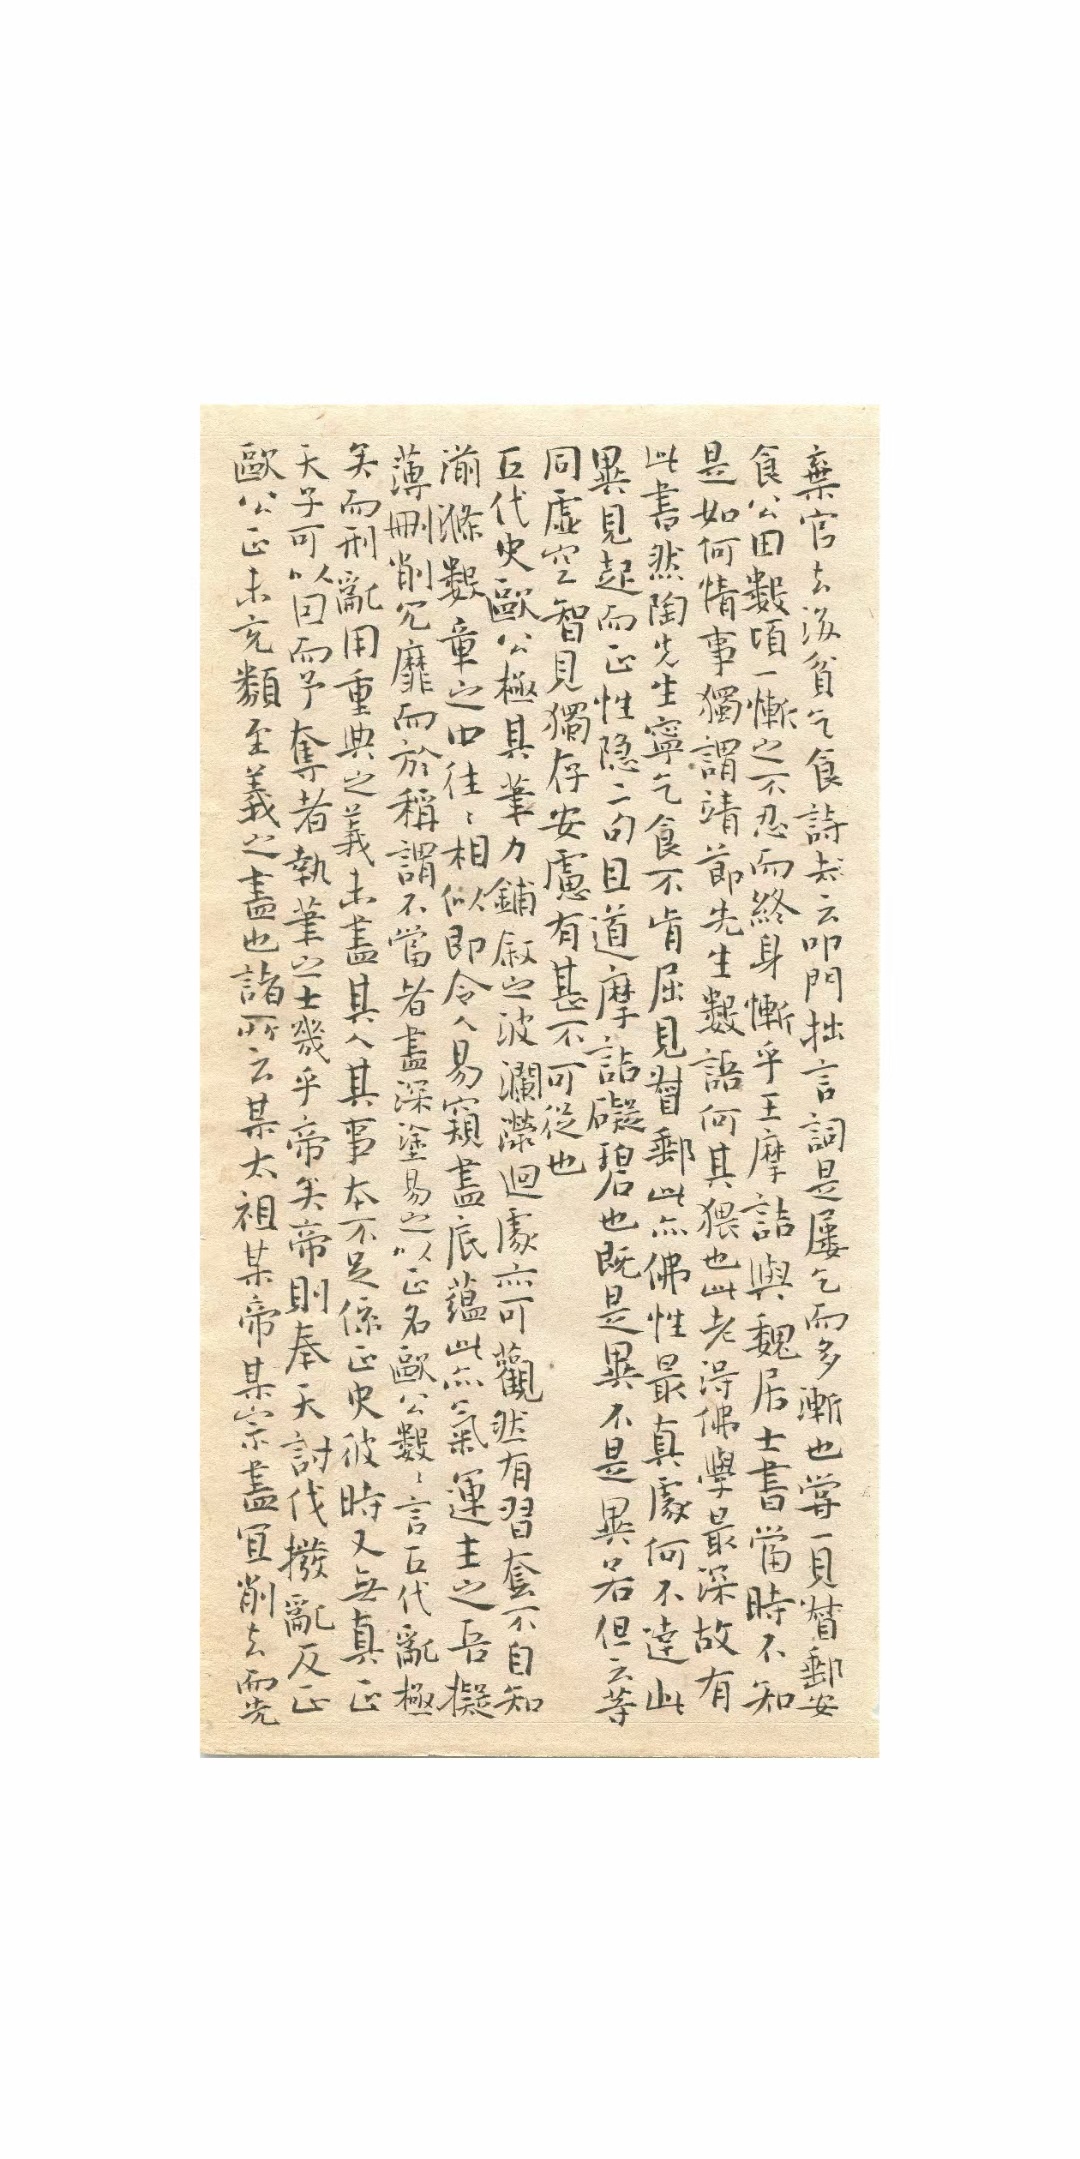 棄官去後貧乞食詩去云叩門拙言詞是屢乞而多漸也嘗一見督郵安
食公田數頃一慚之不忍而終身慚乎王摩詰與魏居士書當時不知
是如何情事獨謂靖節先生數語何其猥也此老得佛學最深故有
此書然陶先生寧乞食不肯屈見督郵此亦佛性最真處何不達此
異見起而正性隱二句且道摩詰礙碧也既是異不是異若但云等
同虛空智見獨存安慮有甚不可從也
五代史歐公極具筆力鋪叙之波瀾瀠迴處亦可觀然有習套不自知
湔滌數章之中往〻相似即令人易窺盡底蘊此亦氣運主之吾擬
薄刪削冗靡而於稱謂不當者盡深塗易之以正名歐公數〻言五代亂極
矣而刑亂用重典之義未盡其人其事本不足係正史彼時又無真正
天子可以因而予奪者執筆之士幾乎帝矣帝則奉天討伐撥亂反正
歐公正未充類至義之盡也諸所云某太祖某帝某宗盡宜削去而先